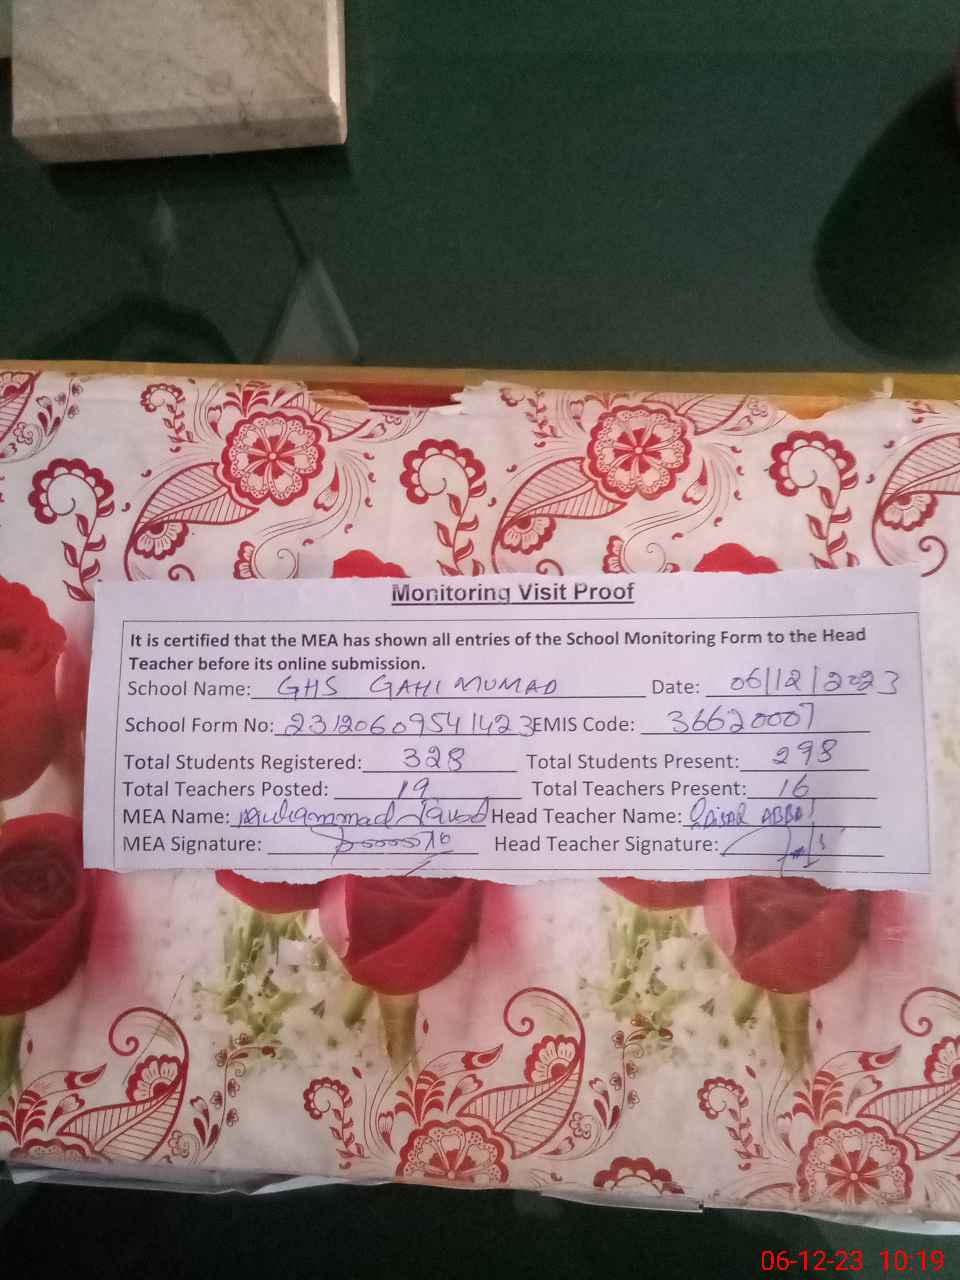 Monitoring Visit Proof
It is certified that the MEA has shown all entries of the School Monitoring Form to the Head
Teacher before its online submission.
School Name: GHS GAHI MUMAD Date: 06/12/2023
School Form No: 23120609541423 EMIS Code: 36620007
Total Students Registered: 328 Total Students Present: 298
Total Teachers Posted: 19 Total Teachers Present: 16
MEA Name: Muhammad Head Teacher Name: QAISAR ABBAS
MEA Signature: Head Teacher Signature:
06-12-23 10:19